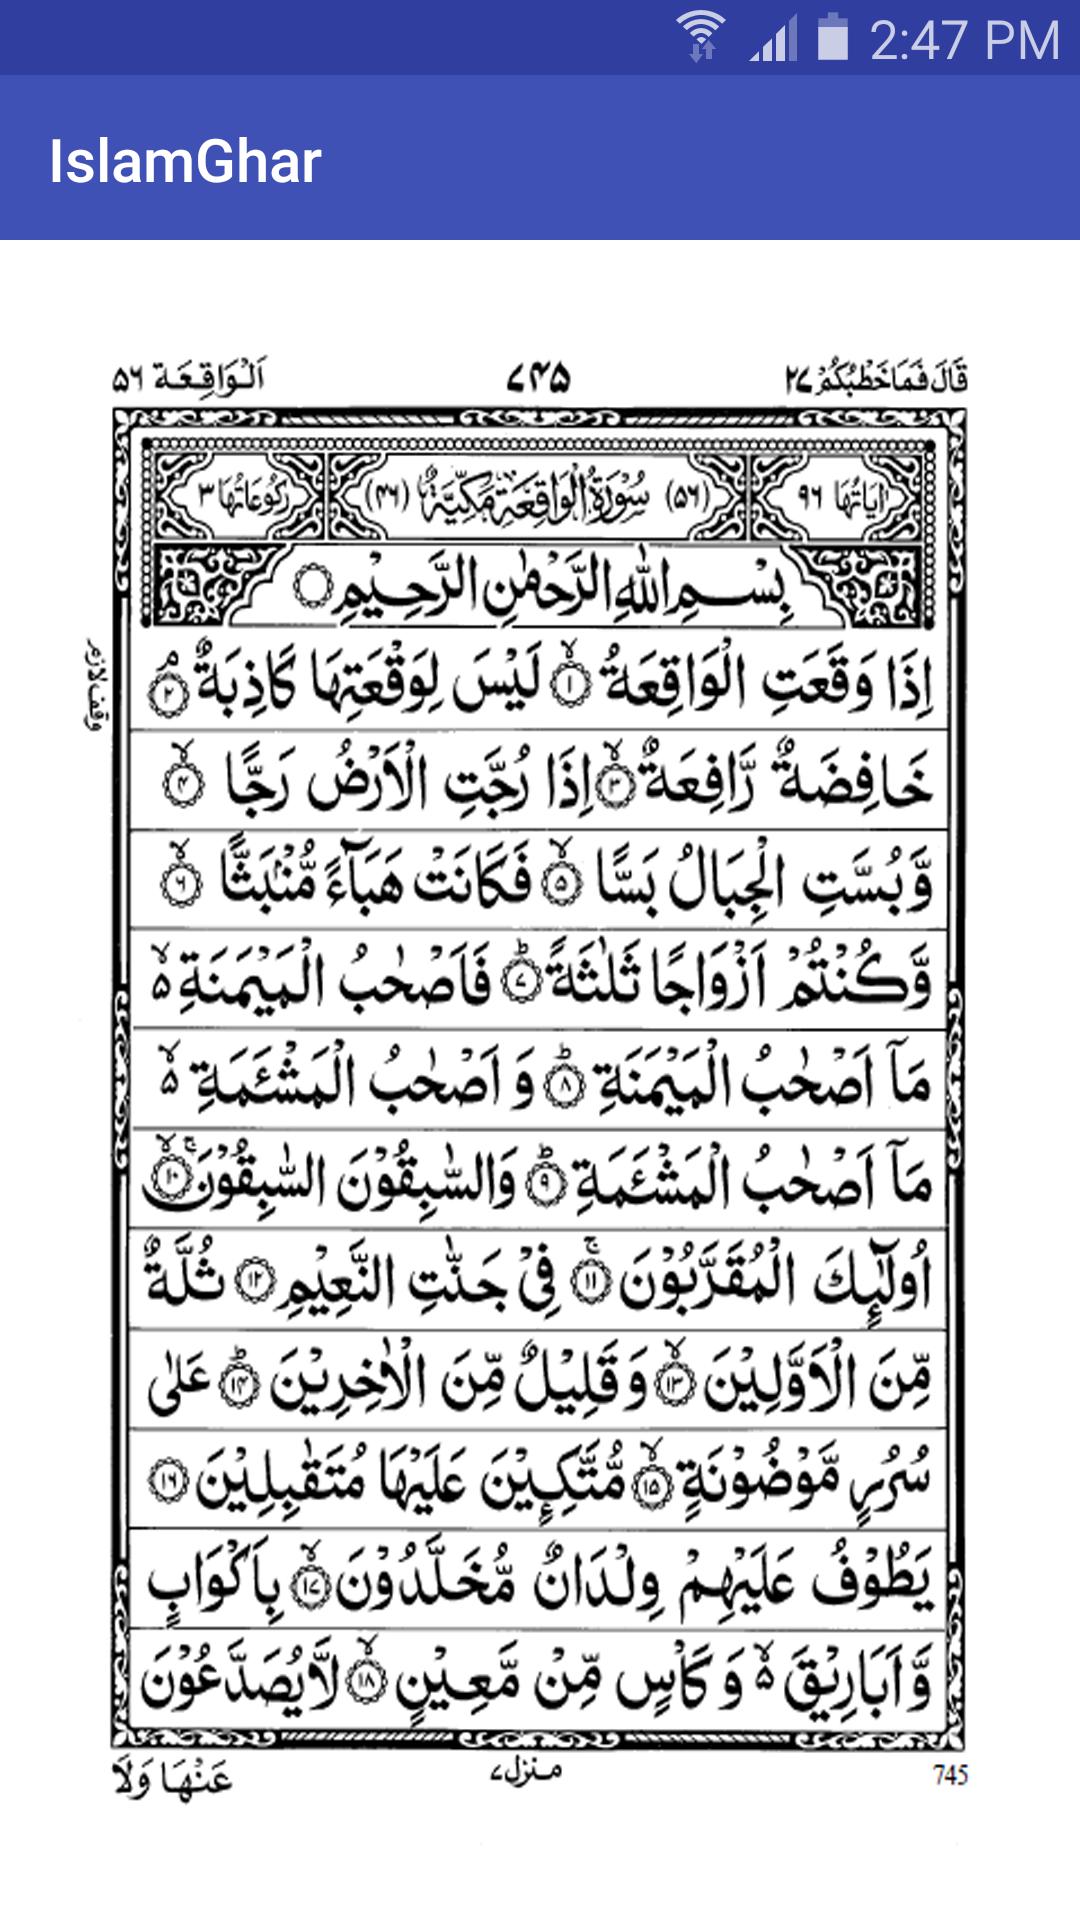 2:47 PM
IslamGhar
قَالَ فَمَا خَطْبُكُمْ ۲۷
۷۴۵
اَلْوَاقِعَة ۵۶
اٰيَاتُهَا ۹۶
(۵۶) سُوْرَةُ الْوَاقِعَةِ مَكِّيَّةٌ (۴۶)
رُكُوْعَاتُهَا ۳
بِسْمِ اللّٰهِ الرَّحْمٰنِ الرَّحِيْمِ ○
وقف لازم
اِذَا وَقَعَتِ الْوَاقِعَةُ ۙ‏﴿۱﴾ لَيْسَ لِوَقْعَتِهَا كَاذِبَةٌ ۘ‏﴿۲﴾
خَافِضَةٌ رَّافِعَةٌ ۙ‏﴿۳﴾ اِذَا رُجَّتِ الْاَرْضُ رَجًّا ۙ‏﴿۴﴾
وَّبُسَّتِ الْجِبَالُ بَسًّا ۙ‏﴿۵﴾ فَكَانَتْ هَبَآءً مُّنْۢبَثًّا ۙ‏﴿۶﴾
وَّكُنْتُمْ اَزْوَاجًا ثَلٰثَةً ؕ‏﴿۷﴾ فَاَصْحٰبُ الْمَيْمَنَةِ ۙ۵
مَآ اَصْحٰبُ الْمَيْمَنَةِ ؕ‏﴿۸﴾ وَ اَصْحٰبُ الْمَشْـَٔمَةِ ۙ۵
مَآ اَصْحٰبُ الْمَشْـَٔمَةِ ؕ‏﴿۹﴾ وَالسّٰبِقُوْنَ السّٰبِقُوْنَ ۚۙ‏﴿۱۰﴾
اُولٰٓئِكَ الْمُقَرَّبُوْنَ ۚ‏﴿۱۱﴾ فِىْ جَنّٰتِ النَّعِيْمِ ‏﴿۱۲﴾ ثُلَّةٌ
مِّنَ الْاَوَّلِيْنَ ۙ‏﴿۱۳﴾ وَ قَلِيْلٌ مِّنَ الْاٰخِرِيْنَ ؕ‏﴿۱۴﴾ عَلٰى
سُرُرٍ مَّوْضُوْنَةٍ ۙ‏﴿۱۵﴾ مُّتَّكِـِٕيْنَ عَلَيْهَا مُتَقٰبِلِيْنَ ‏﴿۱۶﴾
يَطُوْفُ عَلَيْهِمْ وِلْدَانٌ مُّخَلَّدُوْنَ ۙ‏﴿۱۷﴾ بِاَكْوَابٍ
وَّ اَبَارِيْقَ ۙ۵ وَ كَاْسٍ مِّنْ مَّعِيْنٍ ۙ‏﴿۱۸﴾ لَّا يُصَدَّعُوْنَ
عَنْهَا وَلَا
منزل ۷
745